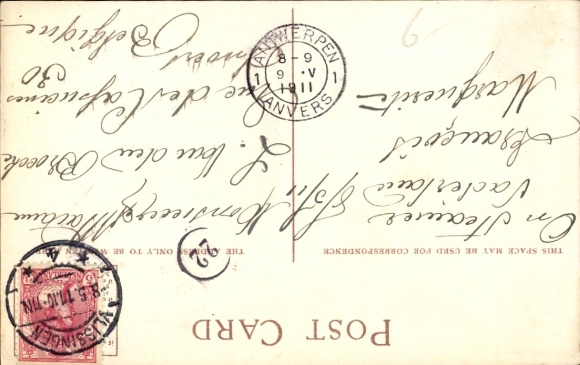 POST CARD
THIS SPACE MAY BE USED FOR CORRESPONDENCE
THE ADDRESS ONLY TO BE W
22
On Steamer
Vaderland 8/5/11
François
Marguerite
Monsieur Martin
L. Van den Broeck
Rue des Capucines
30
Anvers
Belgique
VLISSINGEN
8.5.11.10-11N
ANTWERPEN
8-9
1 9 V 1
1911
ANVERS